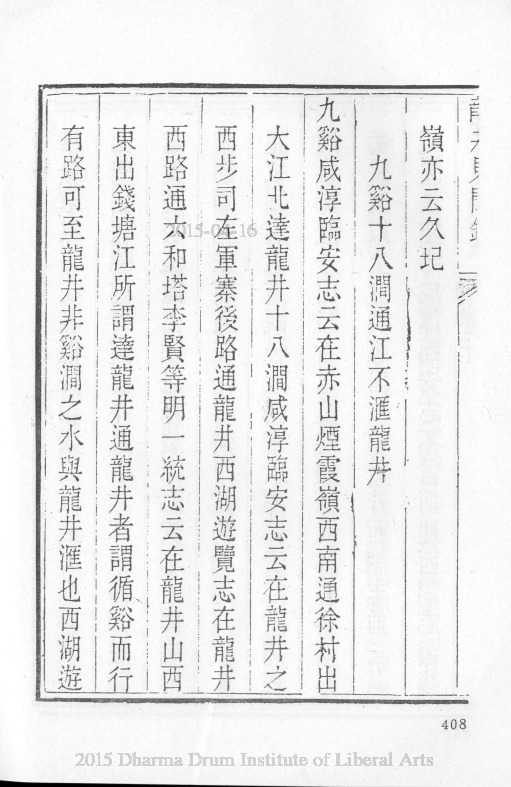 龍井見聞錄
嶺亦云久圮
九谿十八澗通江不滙龍井
九谿咸淳臨安志云在赤山煙霞嶺西南通徐村出
大江北達龍井十八澗咸淳臨安志云在龍井之
西步司左軍寨後路通龍井西湖遊覽志在龍井
西路通六和塔李賢等明一統志云在龍井山西
東出錢塘江所謂達龍井通龍井者謂循谿而行
有路可至龍井非谿澗之水與龍井滙也西湖遊
408
2015-04-16
2015 Dharma Drum Institute of Liberal Arts